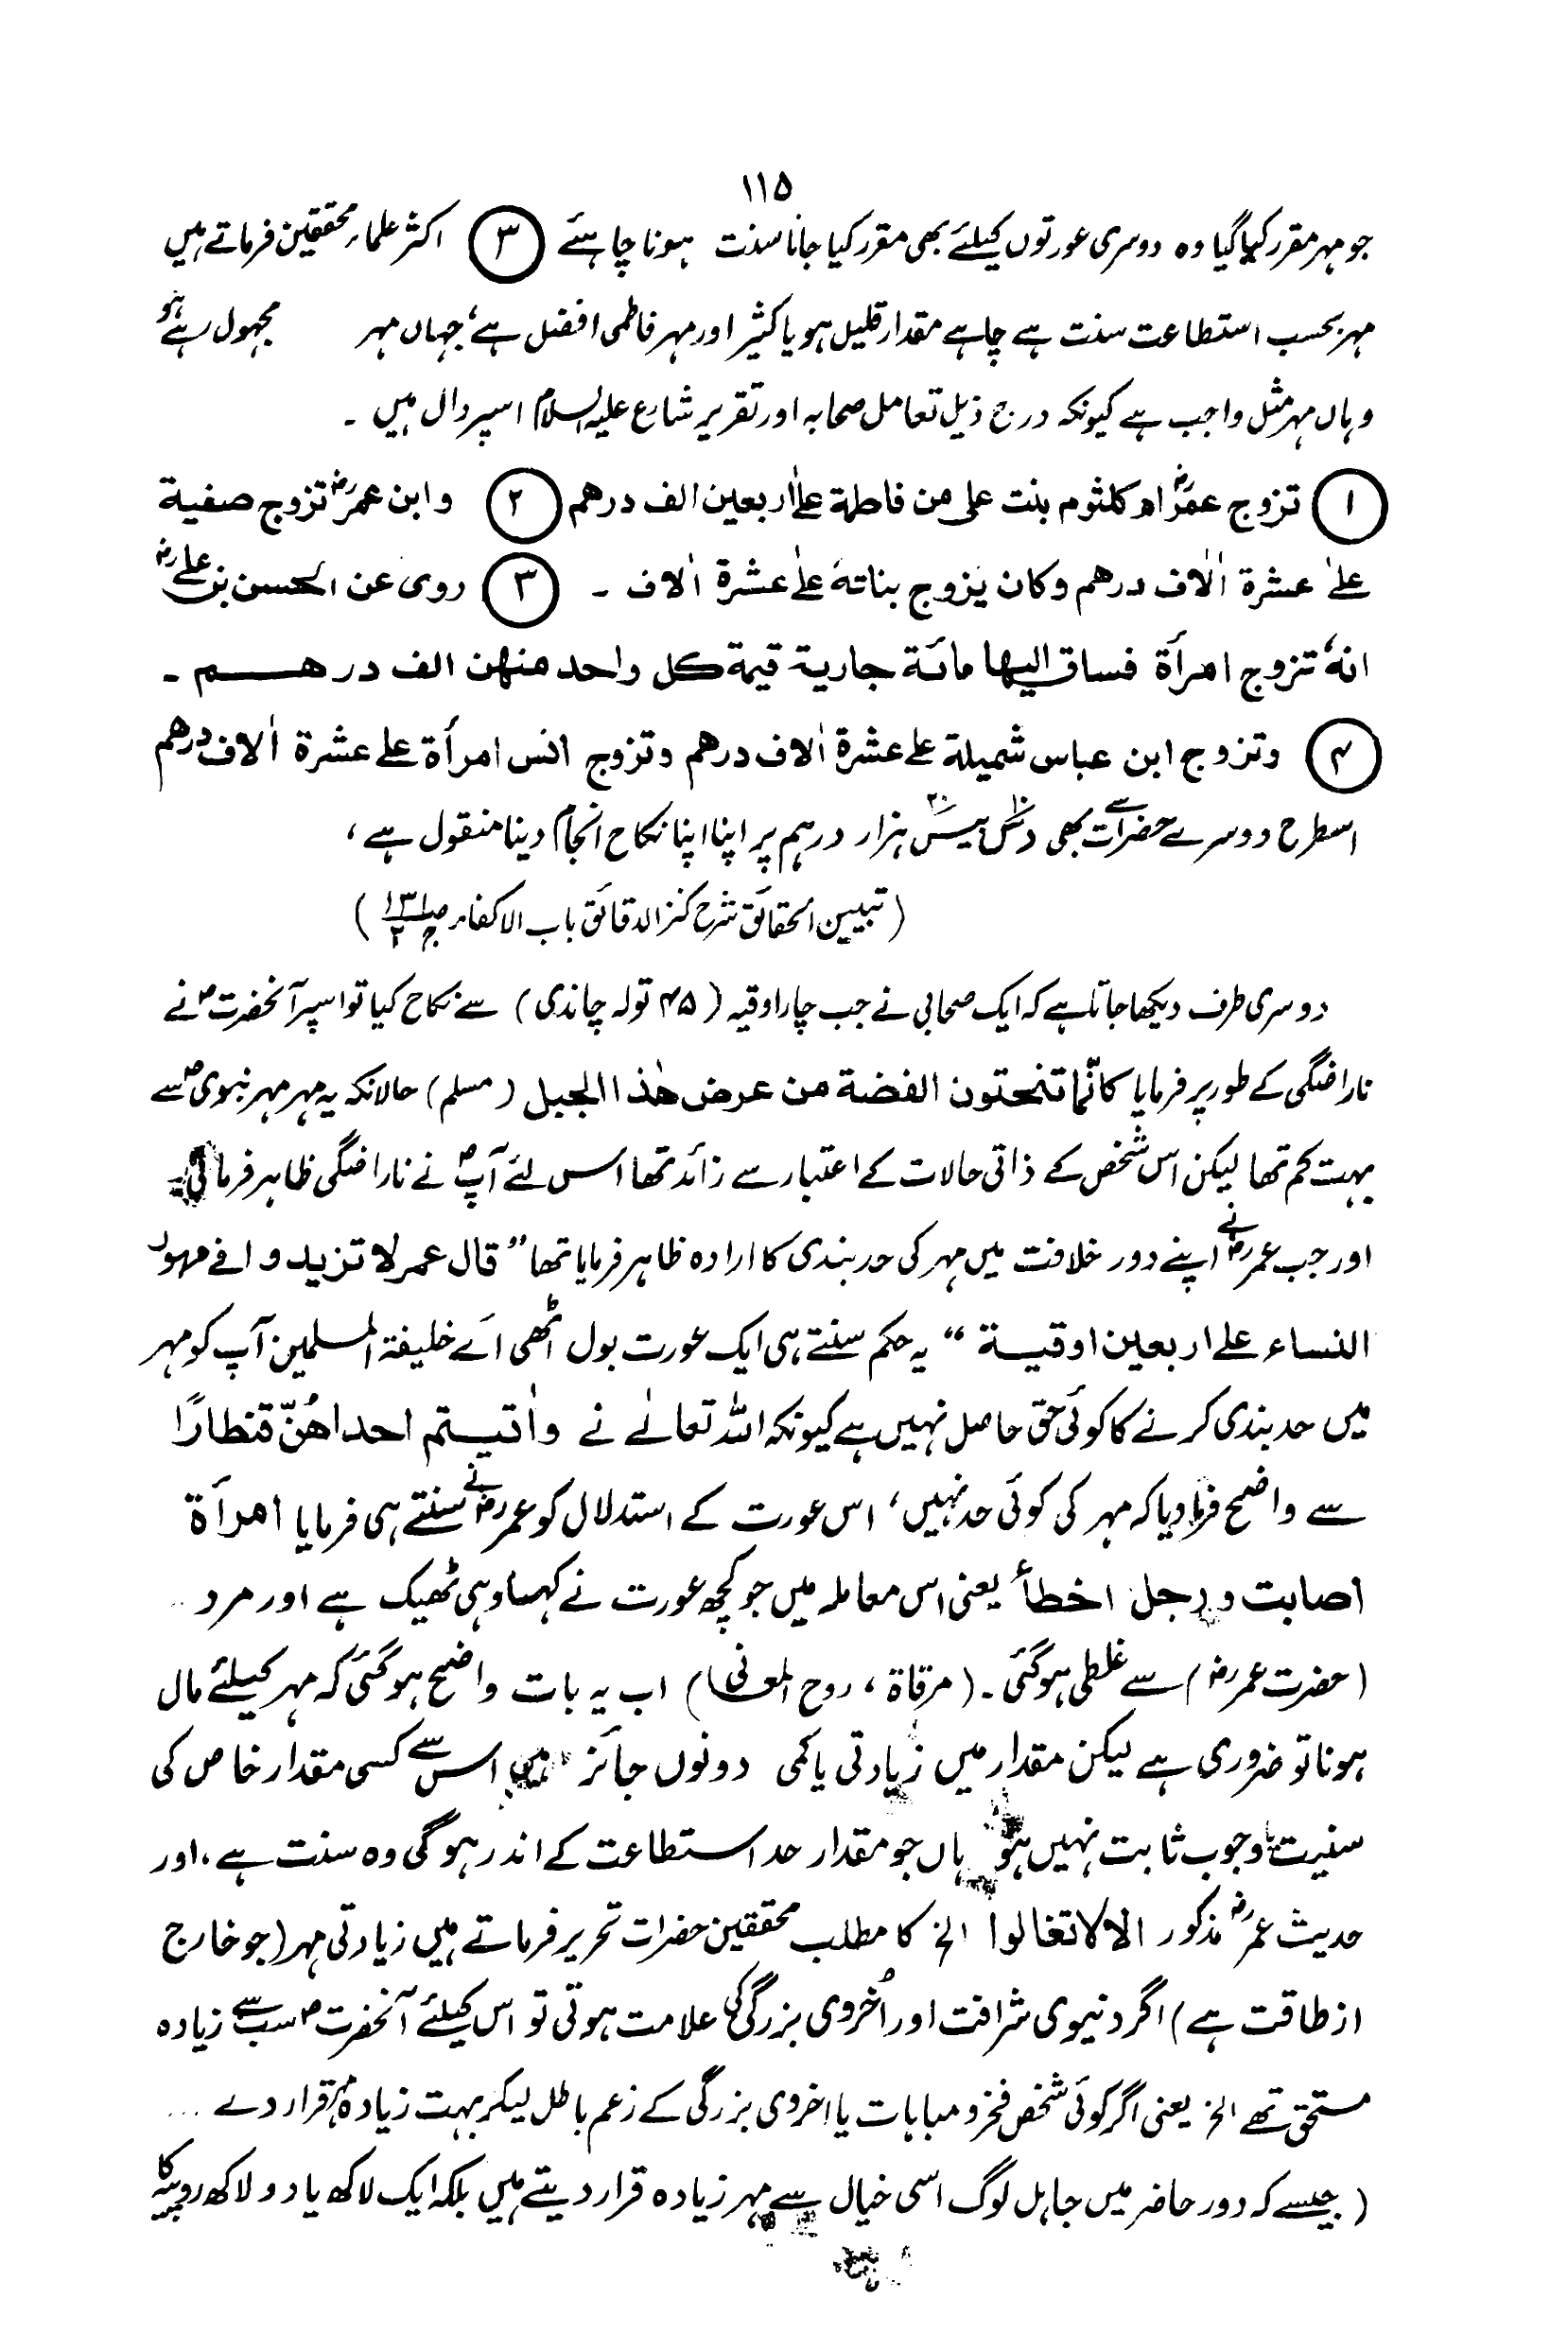 ۱۱۵
جو مہر مقرر کیا گیا وہ دوسری عورتوں کیلئے بھی مقرر کیا جانا سنت ہونا چاہئے ③ اکثر علماء محققین فرماتے ہیں
مہر بحسب استطاعت سنت ہے چاہے مقدار قلیل ہو یا کثیر اور مہر فاطمی افضل ہے، جہاں مہر مجہول رہے ہو
وہاں مہر مثل واجب ہے کیونکہ درج ذیل تعامل صحابہ اور تقریر شارع علیہ السلام اسپر دال ہیں ۔
① تزوج عمرؓ ام کلثوم بنت علی من فاطمة علیٰ اربعین الف درهم ② وابن عمرؓ تزوج صفیة
علیٰ عشرة اٰلاف درهم وکان یزوج بناتہ علیٰ عشرة اٰلاف ۔ ③ روی عن الحسن بن علیؓ
انہٗ تزوج امرأة فساق الیها مائة جاریة قیمة کل واحد منهن الف درهم ۔
④ وتزوج ابن عباس شمیلة علے عشرة اٰلاف درهم وتزوج انس امرأة علے عشرة اٰلاف درهم
اسطرح دوسرے حضرات سے بھی دس۱۰ بیس۲۰ ہزار درہم پر اپنا اپنا نکاح انجام دینا منقول ہے،
(تبیین الحقائق شرح کنز الدقائق باب الاکفاء ص۱۳۱ ج۲)
دوسری طرف دیکھا جاتا ہے کہ ایک صحابی نے جب چار اوقیہ (۴۵ تولہ چاندی) سے نکاح کیا تو اسپر آنحضرتؐ نے
ناراضگی کے طور پر فرمایا کانّما تنحتون الفضة من عرض هٰذا الجبل (مسلم) حالانکہ یہ مہر مہر نبویؐ سے
بہت کم تھا لیکن اس شخص کے ذاتی حالات کے اعتبار سے زائد تھا اس لئے آپؐ نے ناراضگی ظاہر فرمائی
اور جب عمرؓ نے اپنے دور خلافت میں مہر کی حد بندی کا ارادہ ظاہر فرمایا تھا ”قال عمر لا تزیدوا فے مهور
النساء علے اربعین اوقیة“ یہ حکم سنتے ہی ایک عورت بول اٹھی اَے خلیفۃ المسلمین آپ کو مہر
میں حد بندی کرنے کا کوئی حق حاصل نہیں ہے کیونکہ اللہ تعالےٰ نے واٰتیتم احداهُنّ قنطارًا
سے واضح فرمادیا کہ مہر کی کوئی حد نہیں، اس عورت کے استدلال کو عمرؓ نے سنتے ہی فرمایا امرأة
اصابت ورجل اخطأ یعنی اس معاملہ میں جو کچھ عورت نے کہا وہی ٹھیک ہے اور مرد ..
(حضرت عمرؓ) سے غلطی ہوگئی ۔ (مرقاة، روح المعانی) اب یہ بات واضح ہوگئی کہ مہر کیلئے مال
ہونا تو ضروری ہے لیکن مقدار میں زیادتی یا کمی دونوں جائز ہیں اس سے کسی مقدار خاص کی
سنیت یا وجوب ثابت نہیں ہو ہاں جو مقدار حد استطاعت کے اندر ہوگی وہ سنت ہے، اور
حدیث عمرؓ مذکور الا لا تغالوا الخ کا مطلب محققین حضرات تحریر فرماتے ہیں زیادتی مہر (جو خارج
از طاقت ہے) اگر دنیوی شرافت اور اُخروی بزرگی کی علامت ہوتی تو اس کیلئے آنحضرتؐ سب سے زیادہ
مستحق تھے الخ یعنی اگر کوئی شخص فخر و مباہات یا اخروی بزرگی کے زعم باطل لیکر بہت زیادہ مہر قرار دے ...
(جیسے کہ دور حاضر میں جاہل لوگ اسی خیال سے مہر زیادہ قرار دیتے ہیں بلکہ ایک لاکھ یا دو لاکھ روپیہ کا